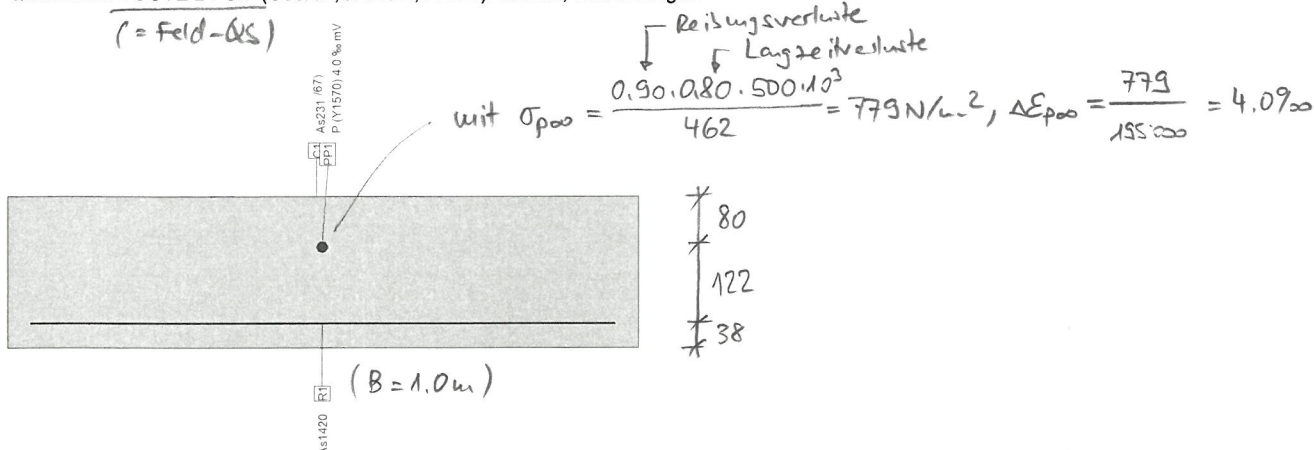 (= Feld-QS)
Reibungsverluste
Langzeitverluste
mit σp∞ = 0.90·0.80·500·10³ / 462 = 779 N/mm², Δεp∞ = 779 / 195'000 = 4.0‰
As231 /67)
P (Y1570) 4.0 ‰ mV
C1
PP1
80
122
38
(B = 1.0m)
R1
As1420